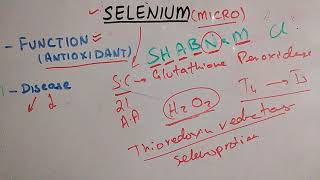 SELENIUM (MICRO)
- FUNCTION
(ANTIOXIDANT)
SHABNAM
SC → Glutathione Peroxidase
- Disease
21
A.A
H2O2
T4 → T3
Thioredoxin reductase
selenoprotien